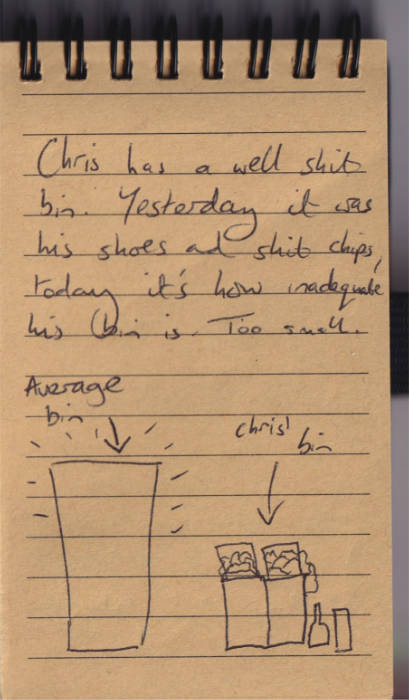 Chris has a well shit
bin. Yesterday it was
his shoes ad shit chips,
today it's how inadequate
his bin is. Too small.
Average
bin
chris'
bin